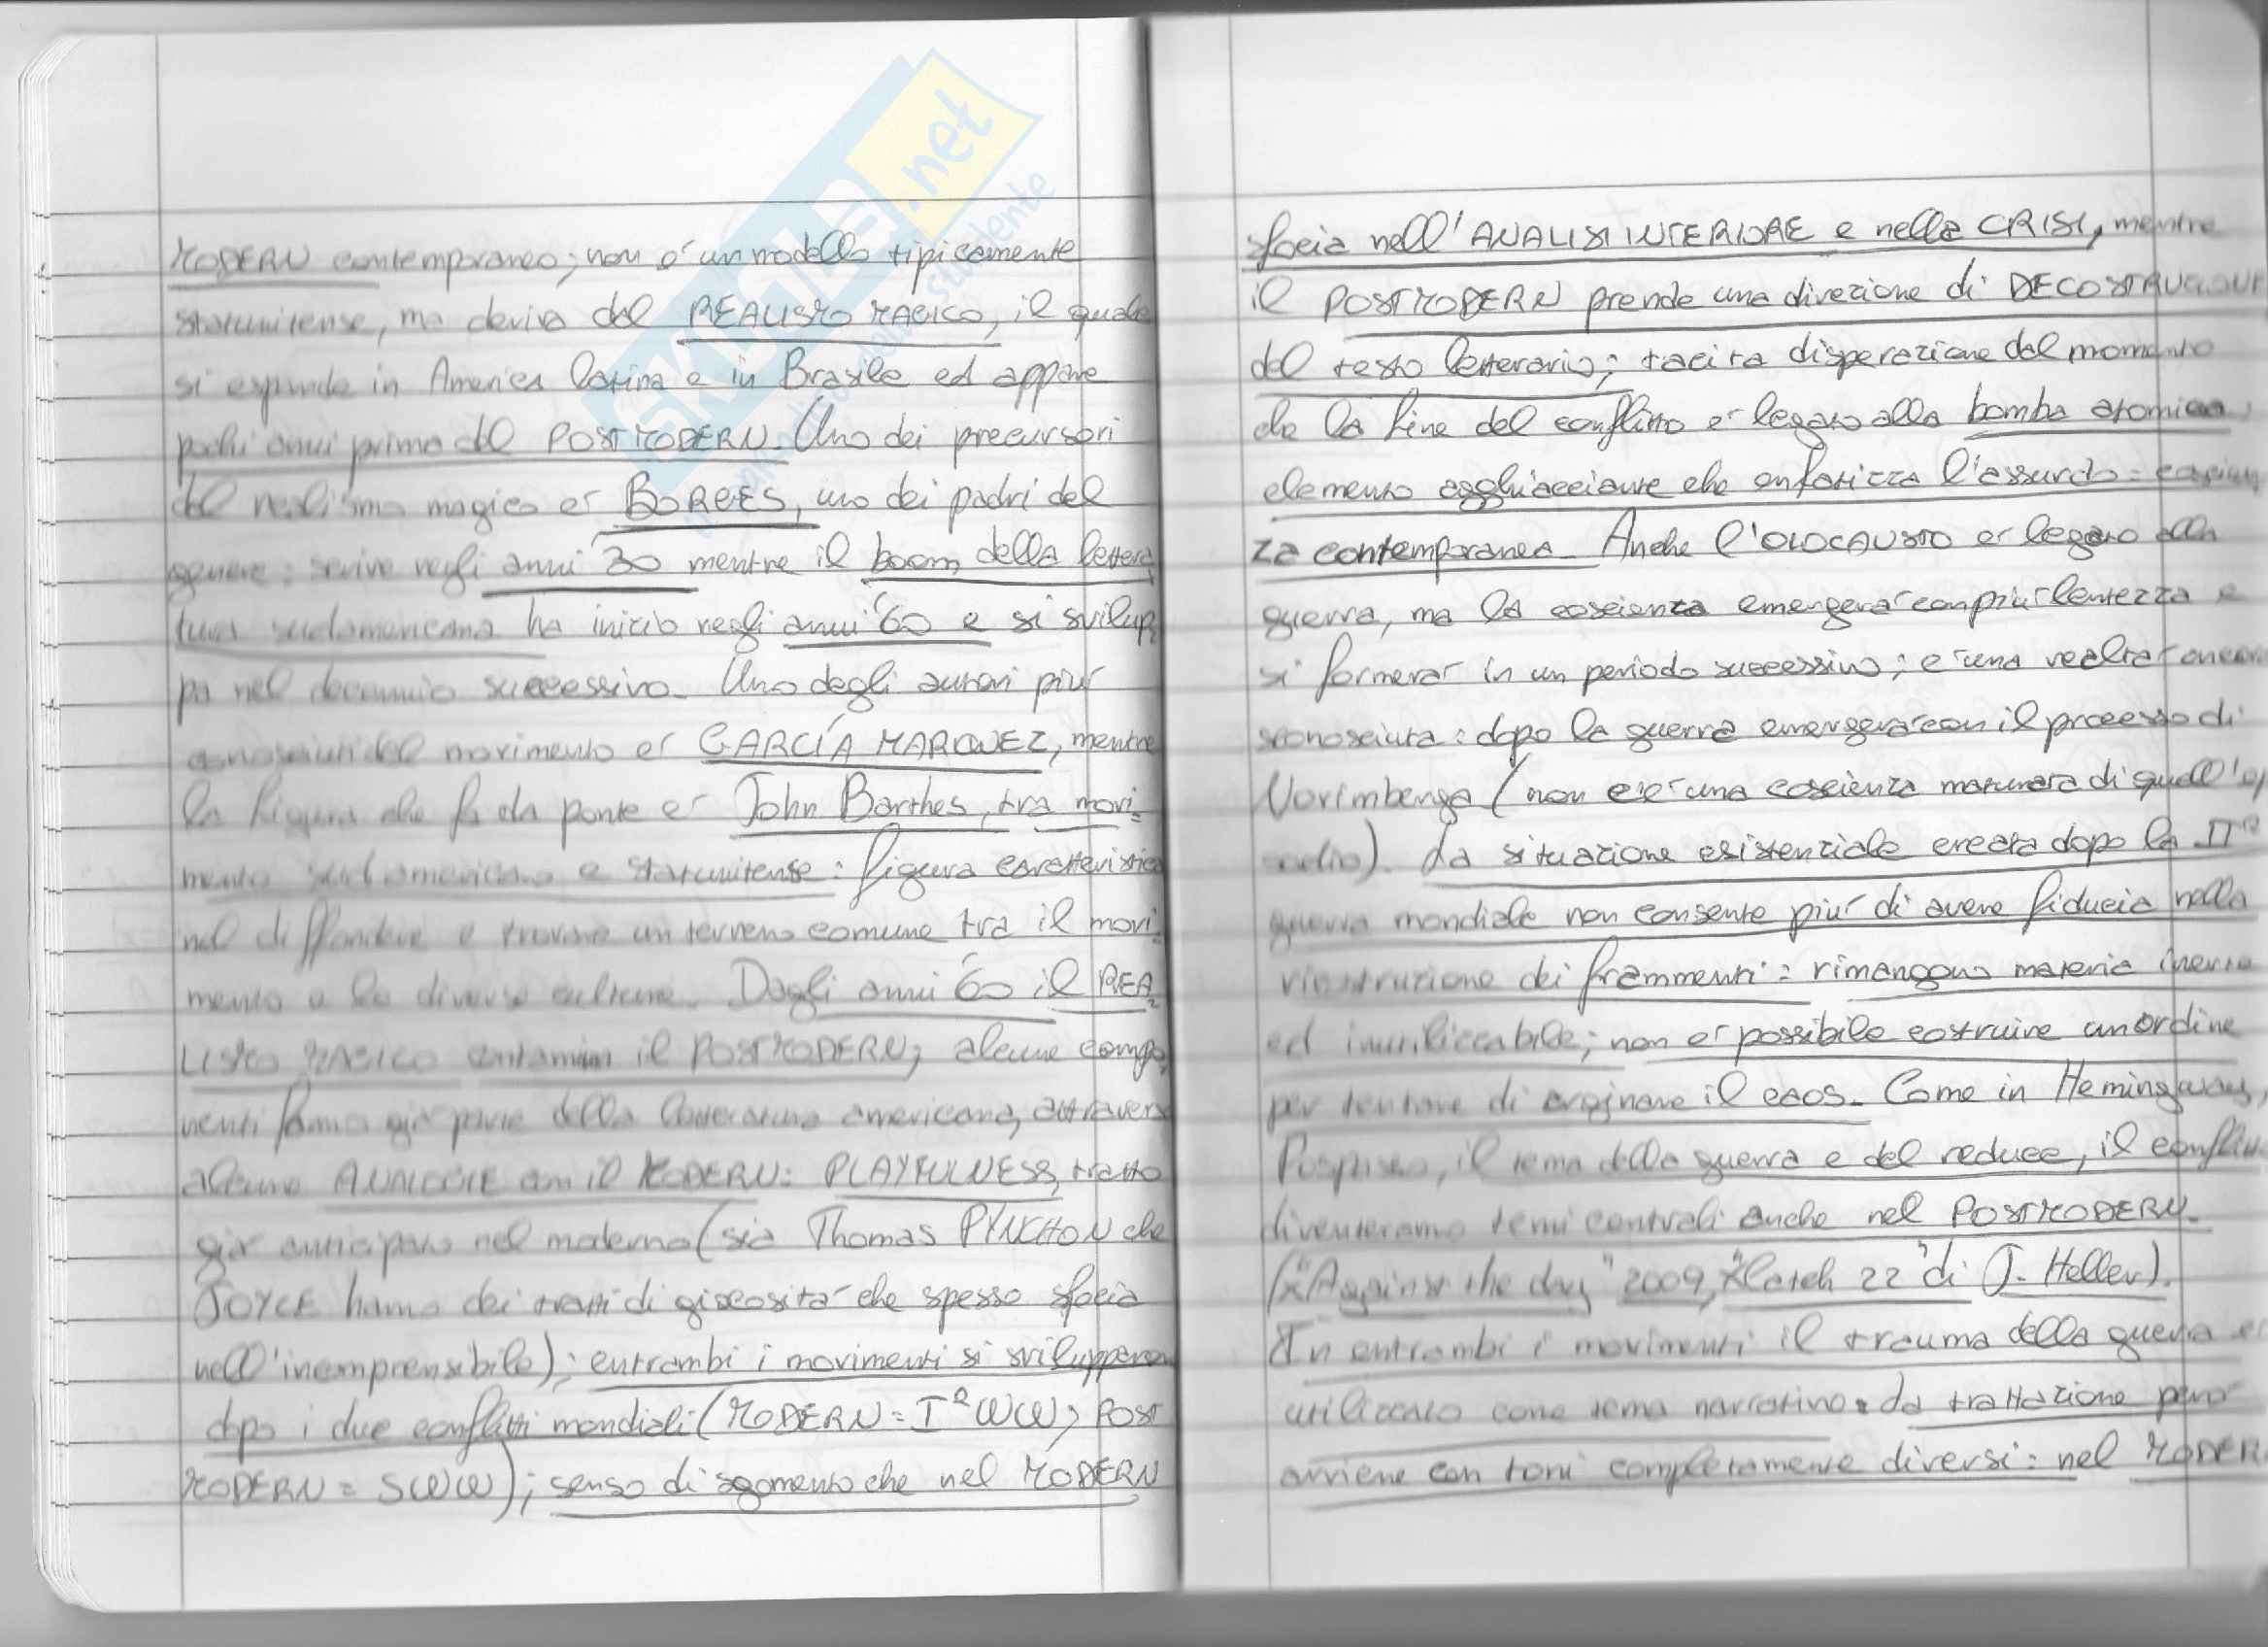 MODERN contemporaneo; non è un modello tipicamente
statunitense, ma deriva dal REALISMO MAGICO, il quale
si espande in America latina e in Brasile ed appare
pochi anni prima del POSTMODERN. Uno dei precursori
del realismo magico è BORGES, uno dei padri del
genere: scrive negli anni '30 mentre il boom della lettera
tura sudamericana ha inizio negli anni '60 e si svilup
pa nel decennio successivo. Uno degli autori più
conosciuti del movimento è GARCÍA MARQUEZ, mentre
la figura che fa da ponte è John Barthes, tra movi-
mento sudamericano e statunitense: figura caratteristica
nel diffondere e trovare un terreno comune tra il movi
mento e le diverse culture. Dagli anni '60 il REA
LISMO MAGICO contamina il POSTMODERN; alcune compo
nenti fanno già parte della letteratura americana, attraverso
alcune ANALOGIE con il MODERN: PLAYFULNESS, tratto
già anticipato nel moderno (sia Thomas PYNCHON che
JOYCE hanno dei tratti di giocosità che spesso sfocia
nell'incomprensibile); entrambi i movimenti si sviluppano
dopo i due conflitti mondiali (MODERN = Iª WW; POST
MODERN = SWW); senso di sgomento che nel MODERN
sfocia nell'ANALISI INTERIORE e nella CRISI, mentre
il POSTMODERN prende una direzione di DECOSTRUZIONE
del testo letterario; tacita disperazione dal momento
che la fine del conflitto è legato alla bomba atomica
elemento agghiacciante che enfatizza l'assurdo =
za contemporanea. Anche l'OLOCAUSTO è legato alla
guerra, ma la coscienza emergerà con più lentezza e
si formerà in un periodo successivo; è una realtà ancora
sconosciuta: dopo la guerra emergerà con il processo di
Norimberga (non c'è una coscienza maturata di quell'ep
sodio). La situazione esistenziale creata dopo la IIª
guerra mondiale non consente più di avere fiducia nella
ricostruzione dei frammenti: rimangono materia inerte
ed inutilizzabile; non è possibile costruire un ordine
per tentare di arginare il caos. Come in Hemingway,
il tema della guerra e del reduce, il conflitto
diventeranno temi centrali anche nel POSTMODERN.
("Against the day" 2009, "Catch 22" di J. Heller).
In entrambi i movimenti il trauma della guerra è
utilizzato come tema narrativo. La trattazione però
avviene con toni completamente diversi: nel MODERN
SKUOLA.net